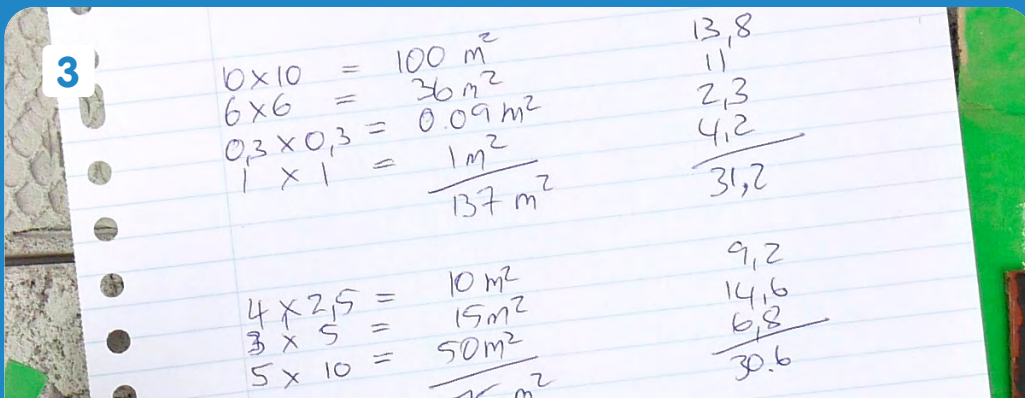 3
10 x 10 = 100 m²
6 x 6 = 36 m²
0,3 x 0,3 = 0.09 m²
1 x 1 = 1 m²
137 m²
13,8
11
2,3
4,2
31,2
4 x 2,5 = 10 m²
3 x 5 = 15 m²
5 x 10 = 50 m²
m²
9,2
14,6
6,8
30.6